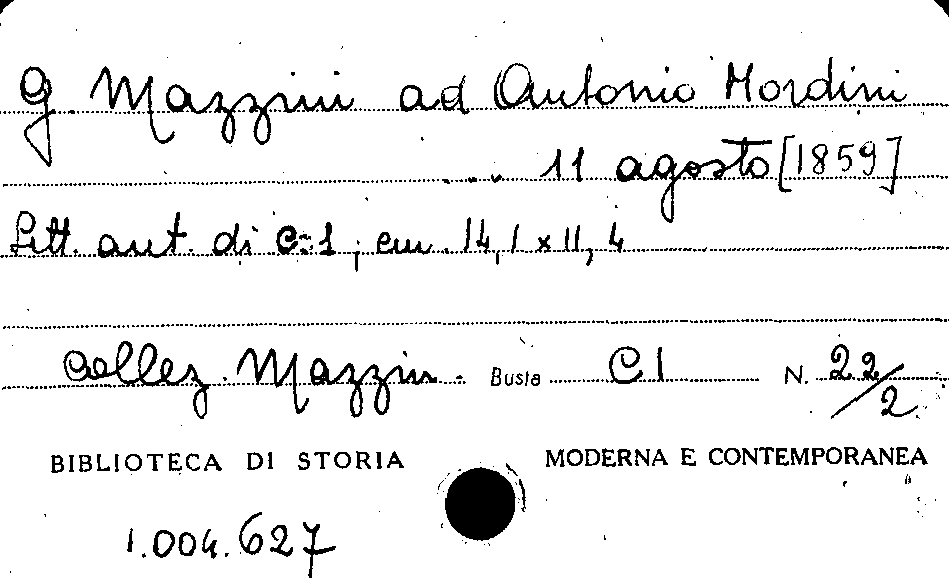 G. Mazzini ad Antonio Mordini
... 11 agosto [1859]
Lett. aut. di c. 1, cm. 14,1 x 11,4
Collez. Mazzin. Busta C I N. 22/2
BIBLIOTECA DI STORIA MODERNA E CONTEMPORANEA
1.004.627